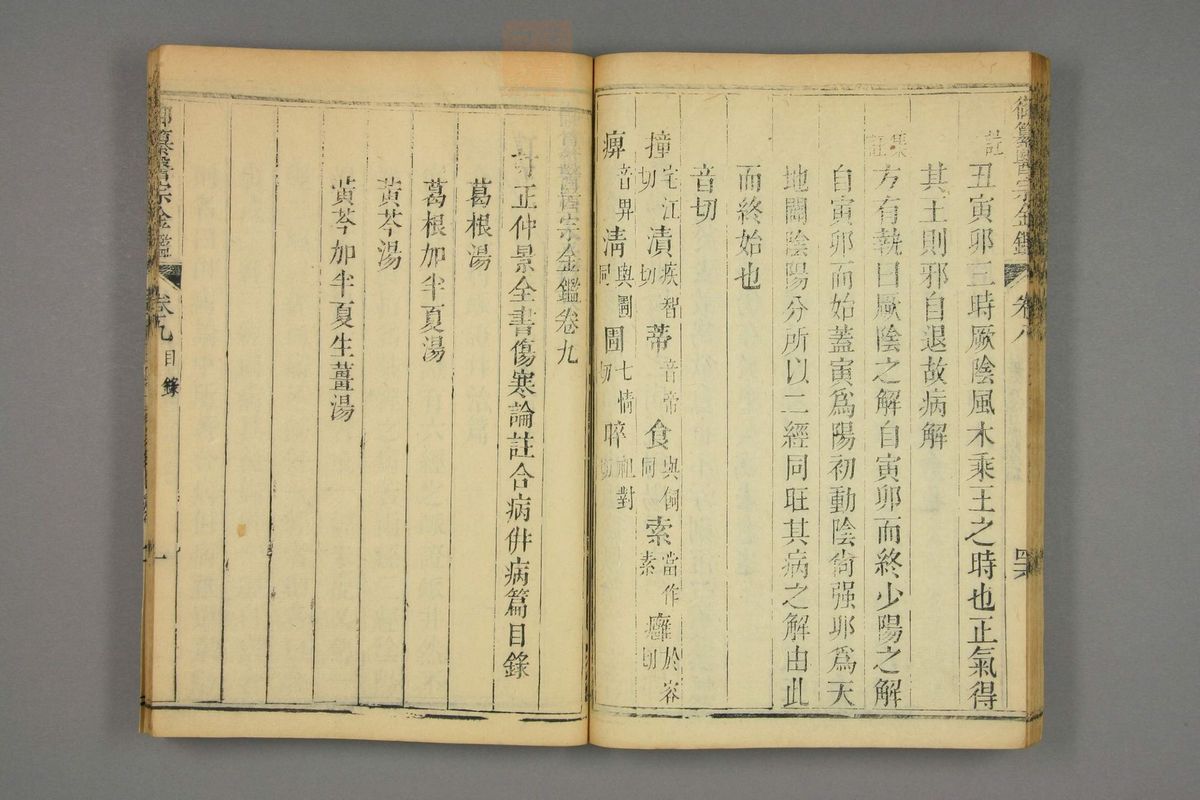 御纂醫宗金鑑 卷八
註 丑寅卯三時厥陰風木乘王之時也正氣得
其王則邪自退故病解
集註 方有執曰厥陰之解自寅卯而終少陽之解
自寅卯而始蓋寅爲陽初動陰尙强卯爲天
地闢陰陽分所以二經同旺其病之解由此
而終始也
音切
撞宅江切 漬疾智切 蒂音帝 食與飼同 索當作素 癰於容切
痺音畀 淸與圊同 圊七情切 啐祖對切
御纂醫宗金鑑卷九
訂正仲景全書傷寒論註合病倂病篇目錄
葛根湯
葛根加半夏湯
黃芩湯
黃芩加半夏生薑湯
御纂醫宗金鑑 卷九 目錄 一